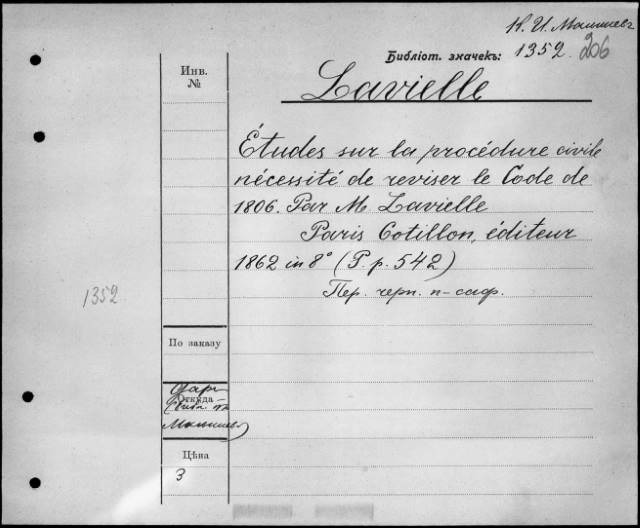 К. И. Малышевъ
Библіот. значекъ: 1352 206
Инв. №
Lavielle
Études sur la procédure civile
nécessité de reviser le Code de
1806. Par M Lavielle
Paris Cotillon, éditeur
1862 in 8° (P. p. 542)
Пер. черн. п-саф.
1352
По заказу
Откуда
Даръ
Малышева
Цѣна
3